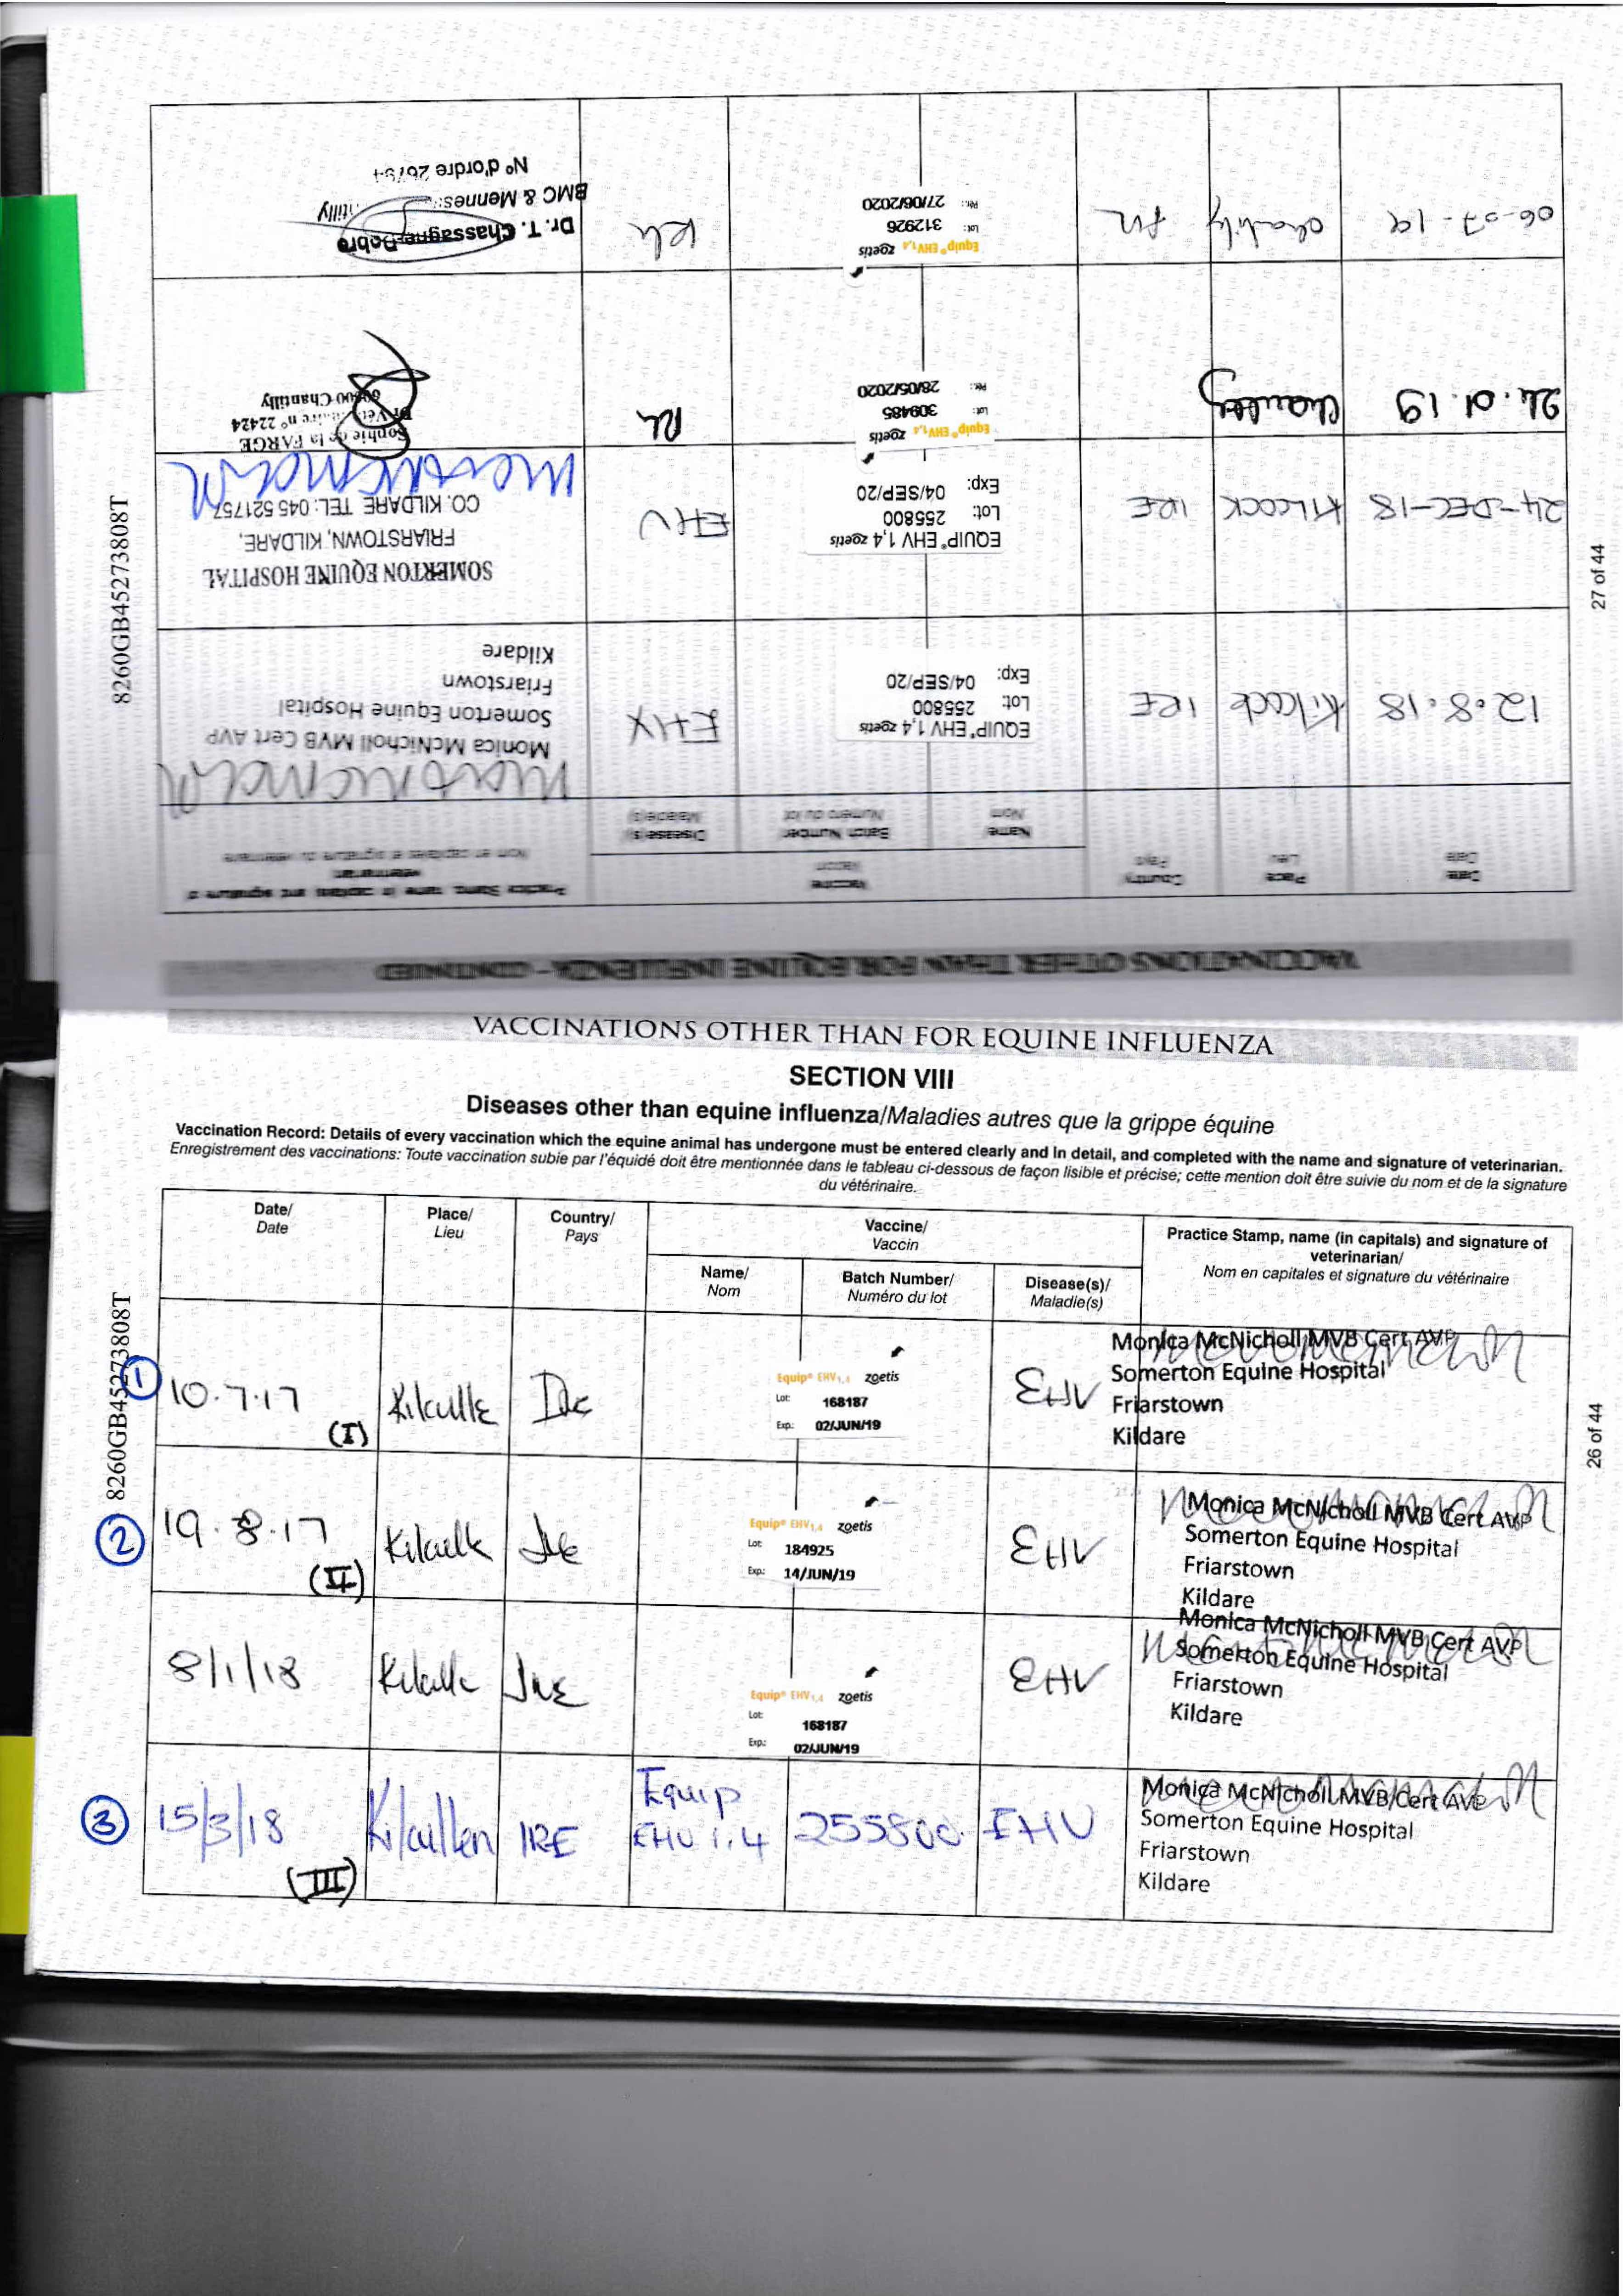 VACCINATIONS OTHER THAN FOR EQUINE INFLUENZA
SECTION VIII
Diseases other than equine influenza/Maladies autres que la grippe équine
Vaccination Record: Details of every vaccination which the equine animal has undergone must be entered clearly and in detail, and completed with the name and signature of veterinarian.
Enregistrement des vaccinations: Toute vaccination subie par l'équidé doit être mentionnée dans le tableau ci-dessous de façon lisible et précise; cette mention doit être suivie du nom et de la signature
du vétérinaire.
Date/ Place/ Country/ Vaccine/ Practice Stamp, name (in capitals) and signature of
Date Lieu Pays Vaccin veterinarian/
Name/ Batch Number/ Disease(s)/ Nom en capitales et signature du vétérinaire
Nom Numéro du lot Maladie(s)
8260GB45273808T
26 of 44
1 10.7.17 (I)
Equip® EHV1,4 zoetis
Lot: 168187
Exp.: 02/JUN/19
EHV
Monica McNicholl MVB Cert AVP
Somerton Equine Hospital
Friarstown
Kildare
2 19.8.17 (II)
Equip® EHV1,4 zoetis
Lot: 184925
Exp.: 14/JUN/19
EHV
Monica McNicholl MVB Cert AVP
Somerton Equine Hospital
Friarstown
Kildare
8/1/18
Equip® EHV1,4 zoetis
Lot: 168187
Exp.: 02/JUN/19
EHV
Monica McNicholl MVB Cert AVP
Somerton Equine Hospital
Friarstown
Kildare
3 15/3/18 (III) Kilcullen IRE
Equip
EHV 1.4
255800
EHV
Monica McNicholl MVB Cert AVP
Somerton Equine Hospital
Friarstown
Kildare
VACCINATIONS OTHER THAN FOR EQUINE INFLUENZA - CONTINUED
Date Place Country Vaccine Practice Stamp, name in capitals and signature of
Date Lieu Pays Vaccin veterinarian
Name Batch Number Disease(s) Nom en capitales et signature du vétérinaire
Nom Numéro du lot Maladie(s)
8260GB45273808T
27 of 44
12.8.18 Kilcock IRE
EQUIP® EHV 1,4 zoetis
Lot: 255800
Exp: 04/SEP/20
Monica McNicholl MVB Cert AVP
Somerton Equine Hospital
Friarstown
Kildare
24-DEC-18 KILCOCK IRE
EQUIP® EHV 1,4 zoetis
Lot: 255800
Exp: 04/SEP/20
EHV
SOMERTON EQUINE HOSPITAL
FRIARSTOWN, KILDARE,
CO. KILDARE TEL: 045 521757
24.01.19 Chantilly
Equip® EHV1,4 zoetis
Lot: 309485
Per.: 28/05/2020
Rh
Sophie de la FARGE
n° 22424
60500 Chantilly
06-07-19 Chantilly
Equip® EHV1,4 zoetis
Lot: 312926
Per.: 27/06/2020
Rh
Dr. T. Chassagne
BMC &
N° d'ordre